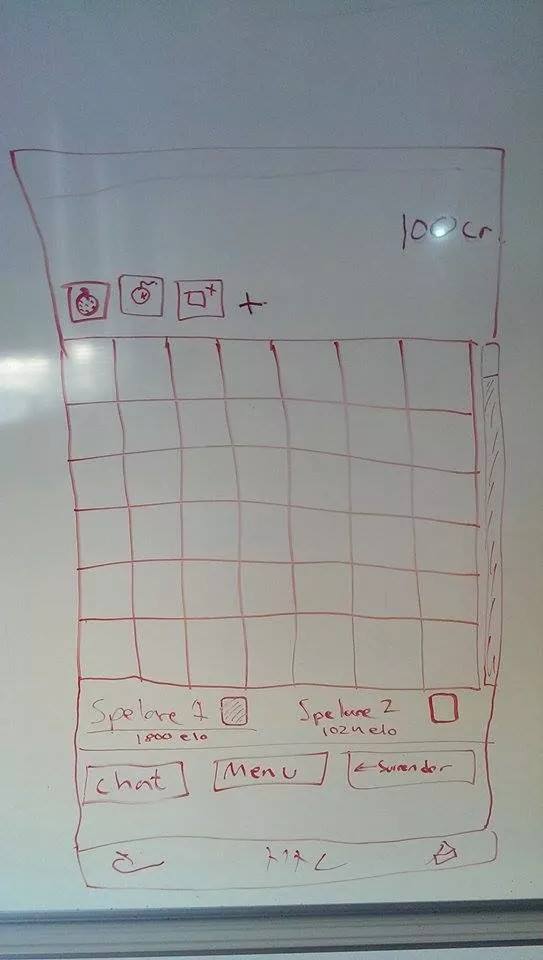 100cr
+
Spelare 1
1800 elo
Spelare 2
1024 elo
Chat
Menu
←Surrender